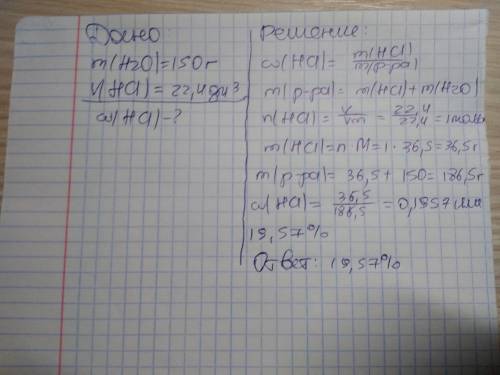 Дано:
m(H2O)=150г
V(HCl)=22,4дм³
ω(HCl)-?
Решение:
ω(HCl)= m(HCl)/m(р-ра)
m(р-ра)= m(HCl)+m(H2O)
n(HCl)= V/Vm = 22,4/22,4 =1моль
m(HCl)=n·M=1·36,5=36,5г
m(р-ра)= 36,5+150=186,5г
ω(HCl)= 36,5/186,5 =0,1957 или
19,57%
Ответ: 19,57%